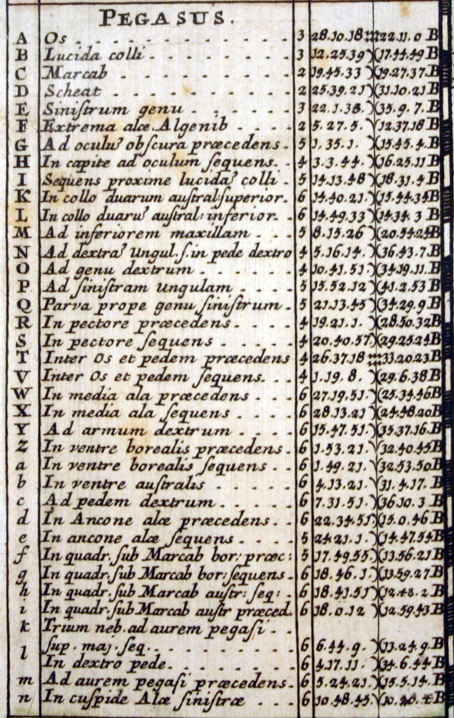 PEGASUS.
A Os 3 28.10.18 22.11.0 B
B Lucida colli 3 12.25.39 17.44.49 B
C Marcab 2 19.45.33 19.27.37 B
D Scheat 2 25.39.21 31.10.21 B
E Siniſtrum genu 3 22.1.38 35.9.7. B
F Extrema alæ. Algenib 2 5.27.5. 12.37.18 B
G Ad oculũ obſcura præcedens. 5 1.35.1. 15.45.4. B
H In capite ad oculum ſequens. 4 3.3.44. 16.25.11 B
I Sequens proxime lucidã colli 5 14.13.48 18.31.4 B
K In collo duarum auſtral: ſuperior. 6 14.40.21. 15.44.34 B
L In collo duarũ auſtral: inferior. 6 14.49.33 14.34.3 B
M Ad inferiorem maxillam 5 8.15.26 20.54.24 B
N Ad dextrã Ungul. ſ. in pede dextro 4 5.16.14. 36.43.7. B
O Ad genu dextrum 4 10.41.51 34.19.11. B
P Ad ſiniſtram ungulam 5 15.52.12 41.2.53 B
Q Parva prope genu ſiniſtrum 5 21.13.45 34.29.9. B
R In pectore præcedens 4 19.21.1. 28.50.32 B
S In pectore ſequens 4 20.40.57 29.25.24 B
T Inter Os et pedem præcedens 4 26.37.18 33.20.23 B
V Inter Os et pedem ſequens 4 1.19.8. 29.6.38 B
W In media ala præcedens 6 27.19.51 25.34.46 B
X In media ala ſequens 6 28.13.21 24.48.20 B
Y Ad armum dextrum 6 15.47.51. 35.37.16 B
Z In ventre borealis præcedens. 6 1.53.21. 32.40.45 B
a In ventre borealis ſequens 6 1.49.21. 32.53.50 B
b In ventre auſtralis 6 4.13.21. 31.4.17. B
c Ad pedem dextrum 6 7.31.51. 36.10.3 B
d In Ancone alæ præcedens 6 22.34.51 15.0.46 B
e In ancone alæ ſequens 5 24.21.1. 14.47.54 B
f In quadr. ſub Marcab bor: præc: 5 17.49.55 13.56.21 B
g In quadr. ſub Marcab bor: ſequens 6 18.46.1. 13.59.27 B
h In quadr. ſub Marcab auſtr: ſeq: 6 18.41.51 B
i In quadr. ſub Marcab auſtr præced. 6 18.0.12 12.59.43 B
k Trium neb. ad aurem pegaſi
ſup. maj. ſeq. 6 6.44.9. 13.24.9. B
l In dextro pede 6 4.17.11. 34.6.44 B
m Ad aurem pegaſi præcedens 6 5.24.21. 15.5.14. B
n In cuſpide Alæ ſiniſtræ 6 10.48.45 B